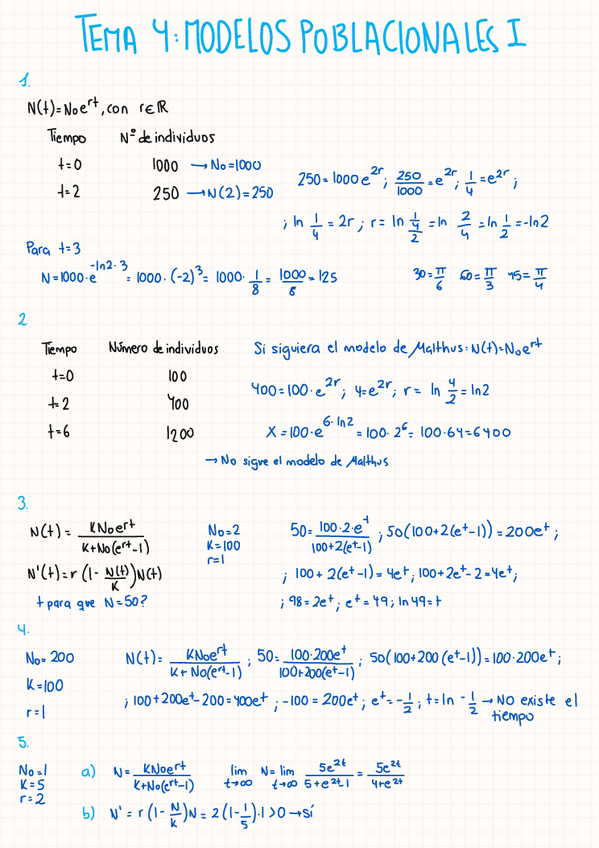 TEMA 4: MODELOS POBLACIONALES I
1.
N(t)=N₀e^rt, con r∈ℝ
Tiempo Nº de individuos
t=0 1000 → N₀=1000
t=2 250 → N(2)=250
250=1000e^2r; 250/1000=e^2r; 1/4=e^2r;
; ln 1/4 = 2r; r= ln (1/4)/2 = ln 2/4 = ln 1/2 = -ln2
Para t=3
N=1000·e^-ln2·3 = 1000·(-2)^3 = 1000·1/8 = 1000/8 = 125
30=π/6 60=π/3 45=π/4
2
Tiempo Número de individuos Si siguiera el modelo de Malthus: N(t)=N₀e^rt
t=0 100
t=2 400
400=100·e^2r; 4=e^2r; r= ln 4/2 = ln2
t=6 1200
X=100·e^6·ln2 = 100·2^6 = 100·64=6400
→ No sigue el modelo de Malthus
3.
N(t)= KN₀e^rt/K+N₀(e^rt-1) N₀=2 50= 100·2·e^t/100+2(e^t-1); 50(100+2(e^t-1))=200e^t;
K=100
r=1
N'(t)=r(1-N(t)/K)N(t) ; 100+2(e^t-1)=4e^t; 100+2e^t-2=4e^t;
t para que N=50? ; 98=2e^t; e^t=49; ln49=t
4.
N₀=200 N(t)= KN₀e^rt/K+N₀(e^rt-1); 50= 100·200e^t/100+200(e^t-1); 50(100+200(e^t-1))=100·200e^t;
K=100
r=1 ; 100+200e^t-200=400e^t; -100=200e^t; e^t=-1/2; t=ln -1/2 → NO existe el
tiempo
5.
N₀=1 a) N= KN₀e^rt/K+N₀(e^rt-1) lim t→∞ N= lim t→∞ 5e^2t/5+e^2t-1 = 5e^2t/4+e^2t
K=5
r=2
b) N'=r(1-N/K)N=2(1-1/5)·1>0 → sí